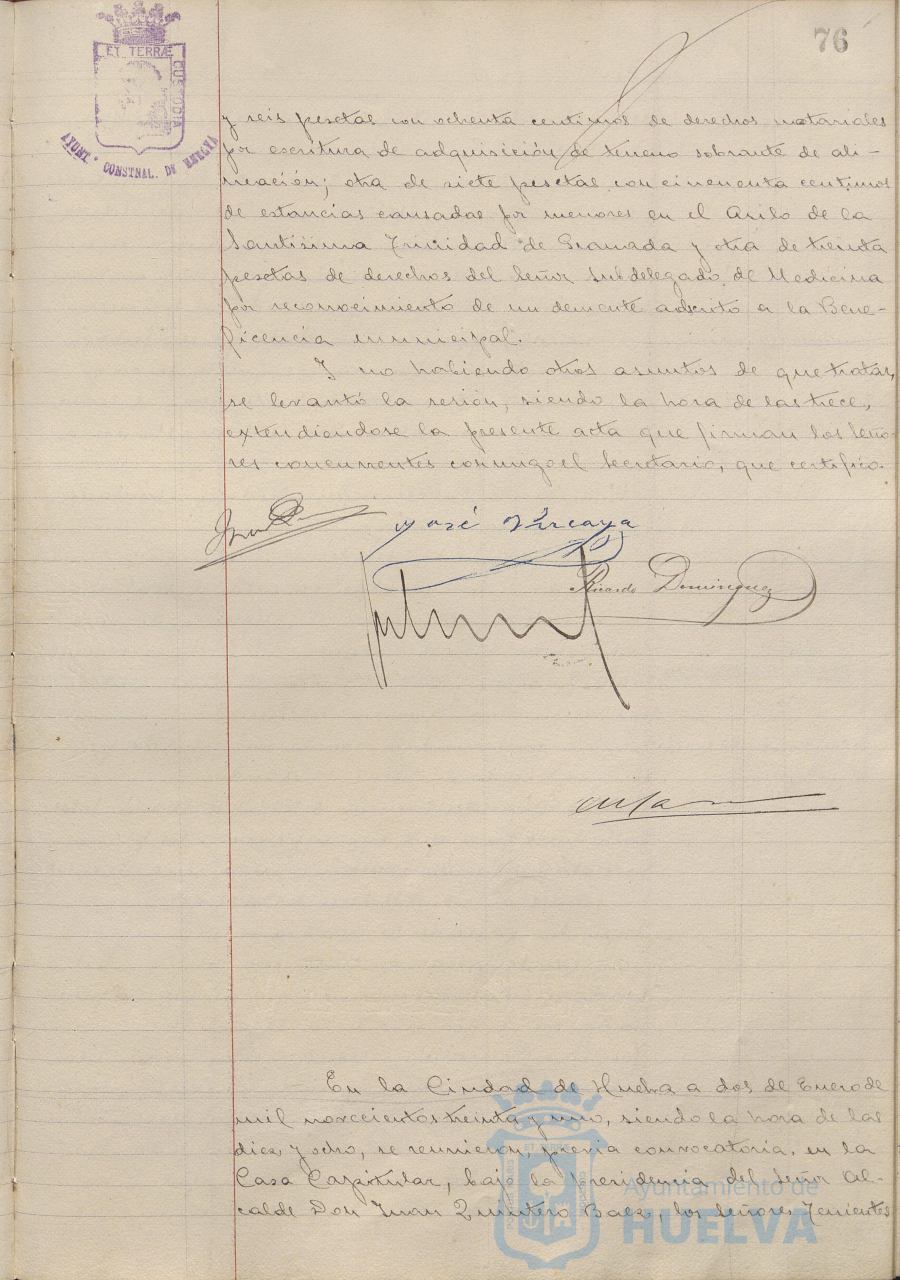 76
ET TERRÆ
CUSTODIA
AYUNT. CONSTNAL. DE HUELVA
y seis pesetas con ochenta centimos de derechos notariales
por escritura de adquisición de terreno sobrante de ali-
neación; otra de siete pesetas con cincuenta centimos
de estancias causadas por menores en el Asilo de la
Santísima Trinidad de Granada y otra de treinta
pesetas de derechos del Señor Subdelegado de Medicina
por reconocimiento de un demente adscrito a la Bene-
ficencia municipal.
Y no habiendo otros asuntos de que tratar,
se levantó la sesión, siendo la hora de las trece,
extendiendose la presente acta que firman los Seño-
res concurrentes conmigo el Secretario, que certifico.
José Vizcaya
Ricardo Dominguez
En la Ciudad de Huelva a dos de Enero de
mil novecientos treinta y uno, siendo la hora de las
diez y ocho, se reunieron, previa convocatoria, en la
Casa Capitular, bajo la presidencia del Señor Al-
calde Don Juan Quintero Baez, los Señores Tenientes
Ayuntamiento de
HUELVA